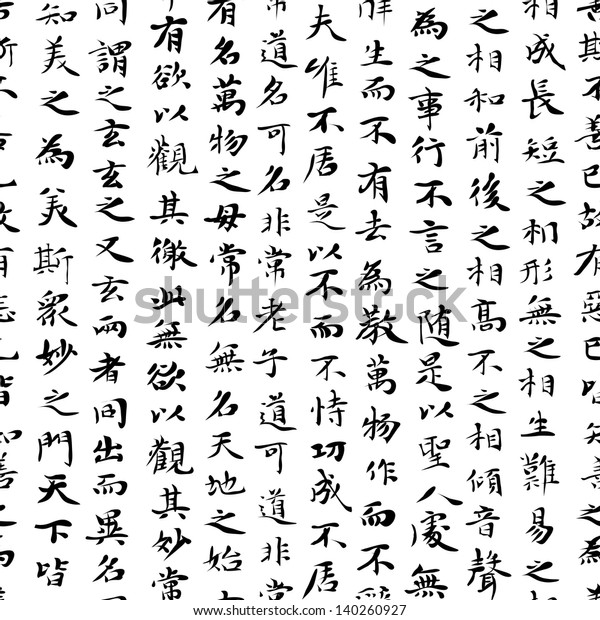 善斯不善已故有惡已皆知善之為
相成長短之相形無之相生難易之相
之相和前後之相高不之相傾音聲
為之事行不言之随是以聖人處無
生而不有去為教萬物作而不辭
夫唯不居是以不而不恃功成不居
常道名可名非常老子道可道非常
有名萬物之母常名無名天地之始
有欲以觀其徼此無欲以觀其妙常
同謂之玄玄之又玄兩者同出而異名同
知美之為美斯眾妙之門天下皆
shutterstock
www.shutterstock.com · 140260927